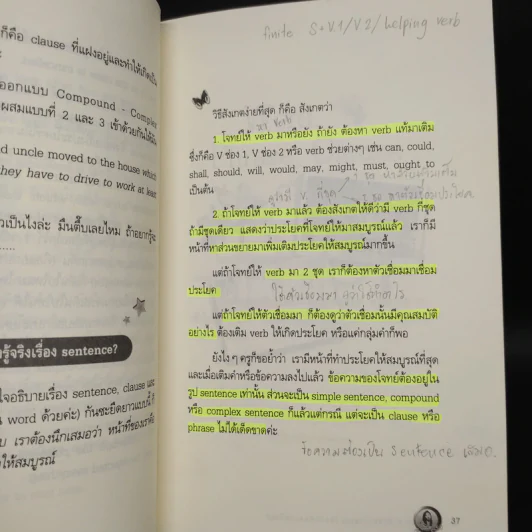 ก็คือ clause ที่แฝงอยู่และทำให้เกิดเป็น
ออกแบบ Compound - Complex
ผสมแบบที่ 2 และ 3 เข้าด้วยกันให้มัน
d uncle moved to the house which
they have to drive to work at least
วเป็นไงล่ะ มึนตึ๊บเลยไหม ถ้าอยากรู้จะ
รู้จริงเรื่อง sentence?
ใจอธิบายเรื่อง sentence, clause และ
น word ด้วยค่ะ) กันซะยืดยาวแบบนี้ ก็
บ เราต้องนึกเสมอว่า หน้าที่ของเราคือ
ให้สมบูรณ์
finite S+V.1/V2/helping verb
วิธีสังเกตง่ายที่สุด ก็คือ สังเกตว่า
หา Verb
1. โจทย์ให้ verb มาหรือยัง ถ้ายัง ต้องหา verb แท้มาเติม
ซึ่งก็คือ V ช่อง 1, V ช่อง 2 หรือ verb ช่วยต่างๆ เช่น can, could,
shall, should, will, would, may, might, must, ought to
เป็นต้น
ดูว่ามี V. กี่ชุด
2. ถ้าโจทย์ให้ verb มาแล้ว ต้องสังเกตให้ดีว่ามี verb กี่ชุด
ถ้ามีชุดเดียว แสดงว่าประโยคที่โจทย์ให้มาสมบูรณ์แล้ว เราก็มี
หน้าที่หาส่วนขยายมาเพิ่มเติมประโยคให้สมบูรณ์มากขึ้น
แต่ถ้าโจทย์ให้ verb มา 2 ชุด เราก็ต้องหาตัวเชื่อมมาเชื่อม
ประโยค
ใช้ตัวเชื่อมมา ดูว่าใช้ทำอะไร
แต่ถ้าโจทย์ให้ตัวเชื่อมมา ก็ต้องดูว่าตัวเชื่อมนั้นมีคุณสมบัติ
อย่างไร ต้องเติม verb ให้เกิดประโยค หรือแค่กลุ่มคำก็พอ
ยังไงๆ ครูก็ขอย้ำว่า เรามีหน้าที่ทำประโยคให้สมบูรณ์ที่สุด
และเมื่อเติมคำหรือข้อความลงไปแล้ว ข้อความของโจทย์ต้องอยู่ใน
รูป sentence เท่านั้น ส่วนจะเป็น simple sentence, compound
หรือ complex sentence ก็แล้วแต่กรณี แต่จะเป็น clause หรือ
phrase ไม่ได้เด็ดขาดค่ะ
ข้อความต้องเป็น Sentence เสมอ.
37